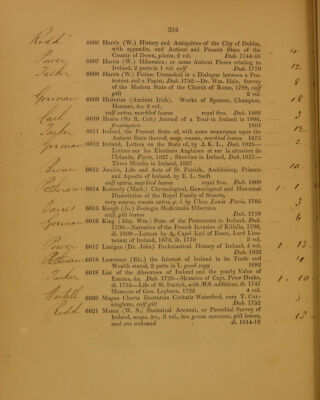 324
Rodd 6006 Harris (W.) History and Antiquities of the City of Dublin,
with appendix, and Antient and Present State of the
County of Down, plates, 2 vol. Dub. 1744-66
Power 6007 Harris (W.) Hibernica; or some Antient Pieces relating to
Ireland, 2 parts in 1 vol. calf Dub. 1770
6008 Harris (W.) Fiction Unmasked in a Dialogue between a Protestant and a Papist, Dub. 1752—Dr. Wm. Hales, Survey
of the Modern State of the Church of Rome, 1788, calf
gilt 2 vol.
Gorman 6009 Histories (Ancient Irish). Works of Spencer, Campion,
Hanmer, &c. 2 vol.
calf extra, marbled leaves royl 8vo. Dub. 1809
6010 Hoare (Sir R. Colt) Journal of a Tour in Ireland in 1806,
frontispiece 1807
6011 Ireland, the Present State of, with some remarques upon the
Antient State thereof, map, russia, marbled leaves 1673
Gorman 6012 Ireland, Letters on the State of, by J. K. L., Dub. 1825—
Lettres sur les Elections Anglaises et sur la situation de
l'Irlande, Paris, 1827; Sketches in Ireland, Dub. 1827—
Three Months in Ireland, 1827
6013 Jocelin, Life and Acts of St. Patrick, Archbishop, Primate
and Apostle of Ireland, by E. L. Swift
calf extra, marbled leaves royl 8vo. Dub. 1809
6014 Kennedy (Math.) Chronological, Genealogical and Historical
Dissertation of the Royal Family of Stuarts,
very scarce, russia extra, g. l. by Chas. Lewis Paris, 1705
6015 Keogh (J.) Zoologia Medicinalis Hibernica
calf, gilt leaves Dub. 1739
Gorman 6016 King (Abp. Wm.) State of the Protestants in Ireland, Dub.
1730—Narrative of the French Invasion of Killala, 1798,
ib. 1800—Letters by A. Capel Earl of Essex, Lord Lieutenant of Ireland, 1675, ib. 1770 3 vol.
Power 6017 Lanigan (Dr. John) Ecclesiastical History of Ireland, 4 vol.
Dub. 1822
6018 Lawrence (Ric.) the Interest of Ireland in its Trade and
Wealth stated, 2 parts in 1, good copy 1682
6019 List of the Absentees of Ireland and the yearly Value of
Estates, &c. Dub. 1729—Memoirs of Capt. Peter Drake,
ib. 1755—Life of St. Patrick, with MS. additions, ib. 1747
Memoirs of Geo. Leyburn, 1722 4 vol.
6020 Magna Charta libertatum Civitatis Waterford, cura T. Cunningham, calf gilt Dub. 1752
Rodd 6021 Mason (W. S.) Statistical Account, or Parochial Survey of
Ireland, maps, &c., 3 vol., two green morocco, gilt leaves,
and one unbound ib. 1814-19